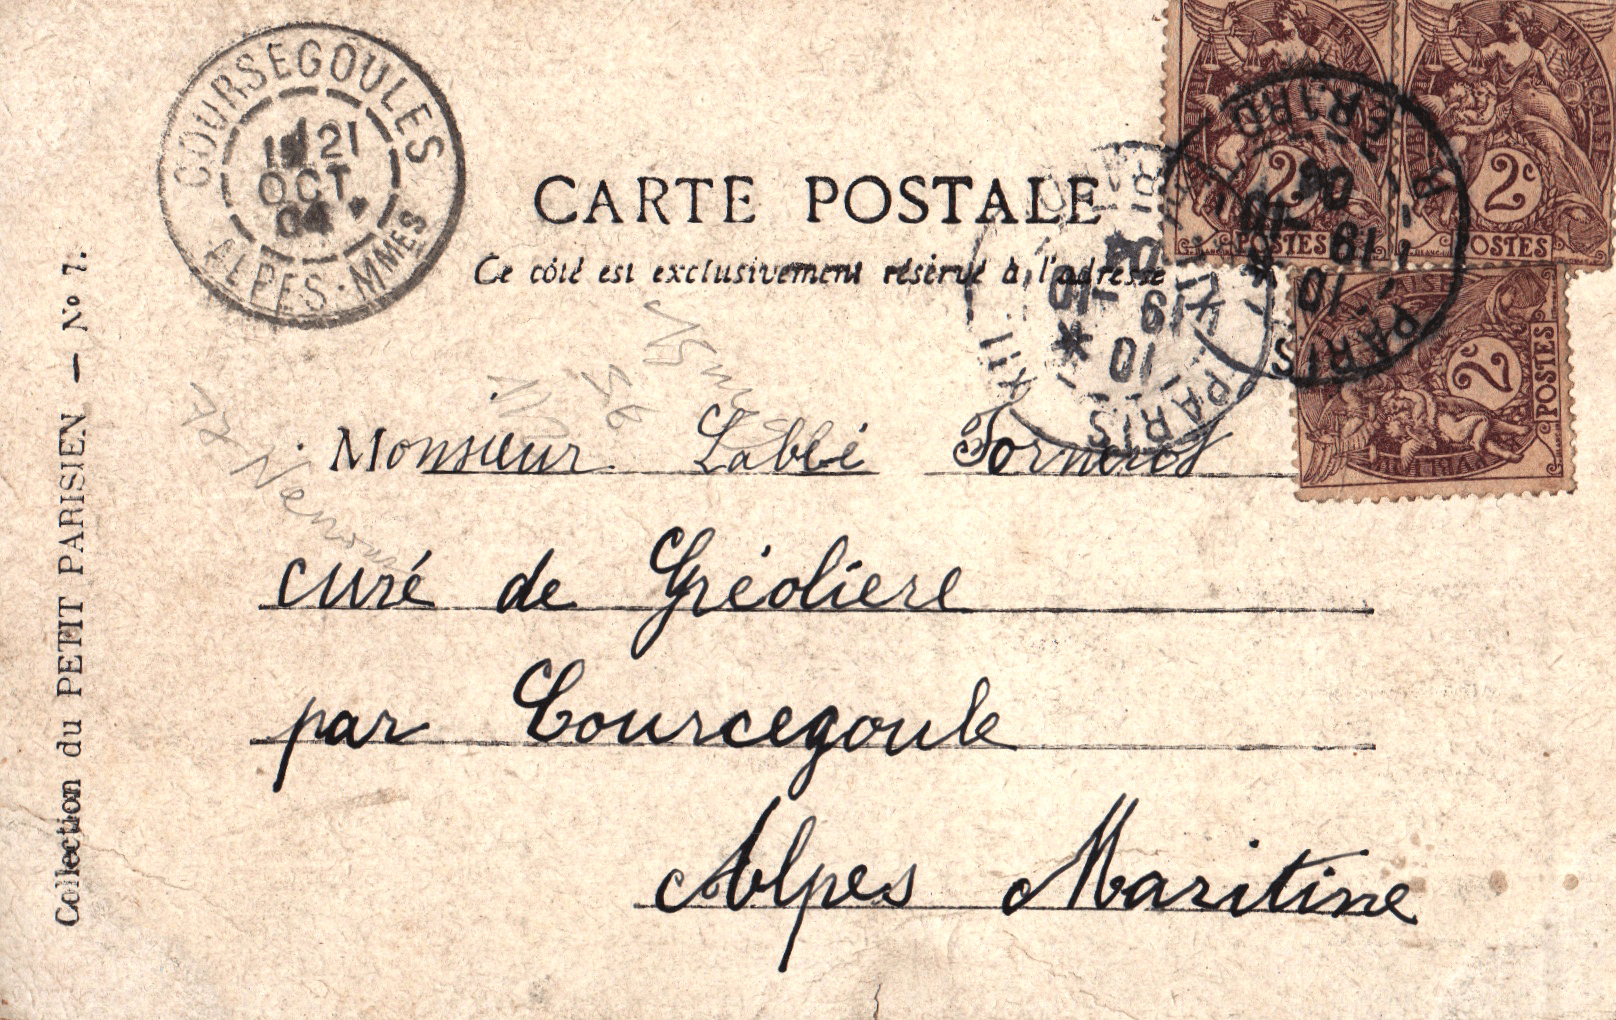 COURSEGOULES
1E/21
OCT
04
ALPES-MMES
CARTE POSTALE
Ce côté est exclusivement réservé à l'adresse
Collection du PETIT PARISIEN — No 7.
Monsieur Labbé
curé de Gréoliere
par Courcegoule
Alpes Maritime
PARIS
10
19 -10
04
PARIS
10
19 -10
04
2c
POSTES
2c
POSTES
2c
POSTES